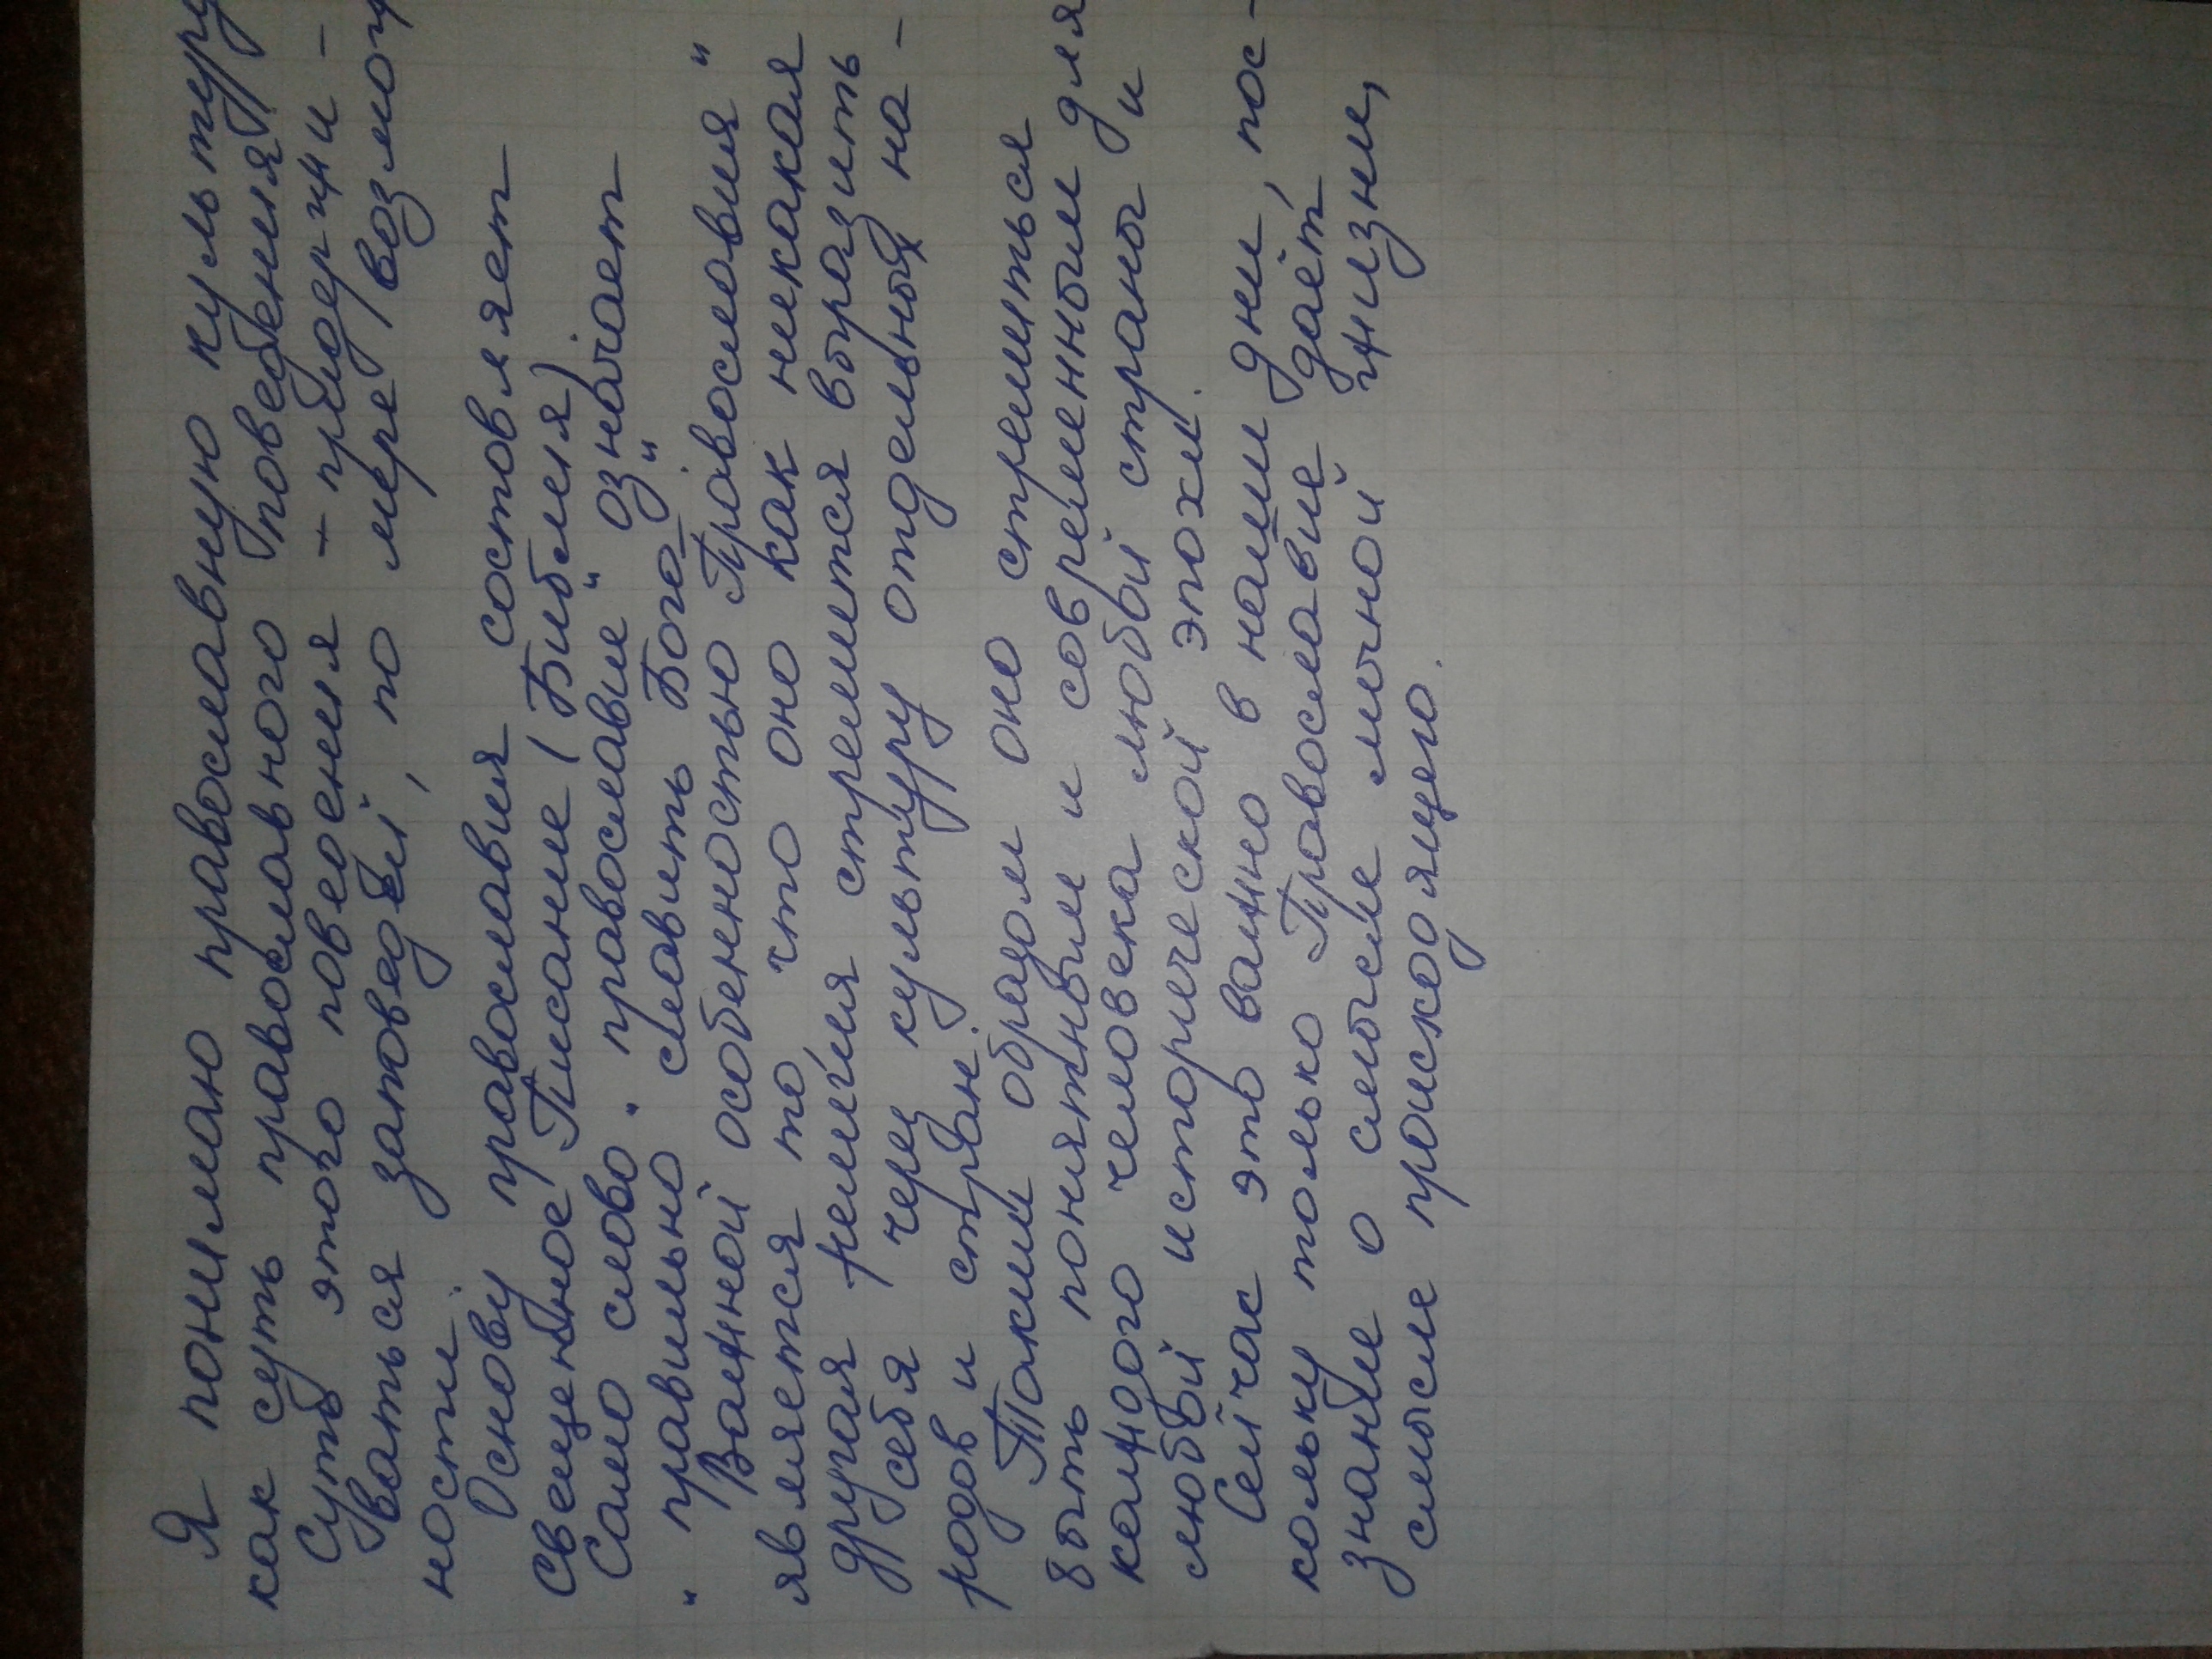 Я понимаю православную культуру
как суть православного поведения.
Суть этого поведения - придержи-
ваться заповедей, по мере возмож
ности.
Основу православия составляет
Священное Писание (Библия).
Само слово "православие" означает
"правильно славить Бога".
Важной особенностью Православия
является то, что оно как никакая
другая религия стремится выразить
себя через культуру отдельных на-
родов и стран.
Таким образом оно стремиться
быть понятным и современным для
каждого человека любой страны и
любой исторической эпохи.
Сейчас это важно в наши дни, пос-
кольку только Православие даёт
знание о смысле личной жизни,
смысле происходящего.